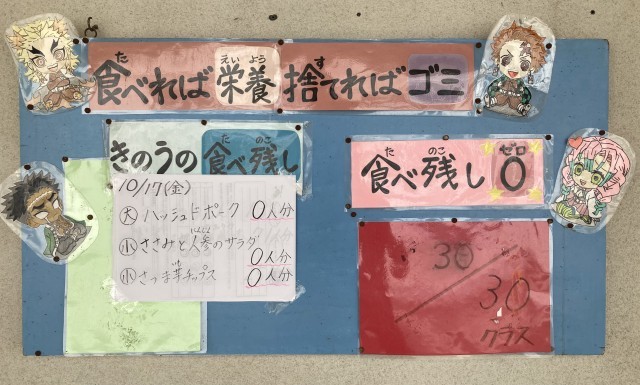 食べれば栄養 捨てればゴミ
きのうの食べ残し
10/17(金)
大 ハッシュドポーク 0人分
小 ささみと人参のサラダ 0人分
小 さつま芋チップス 0人分
食べ残し 0
30
30
クラス